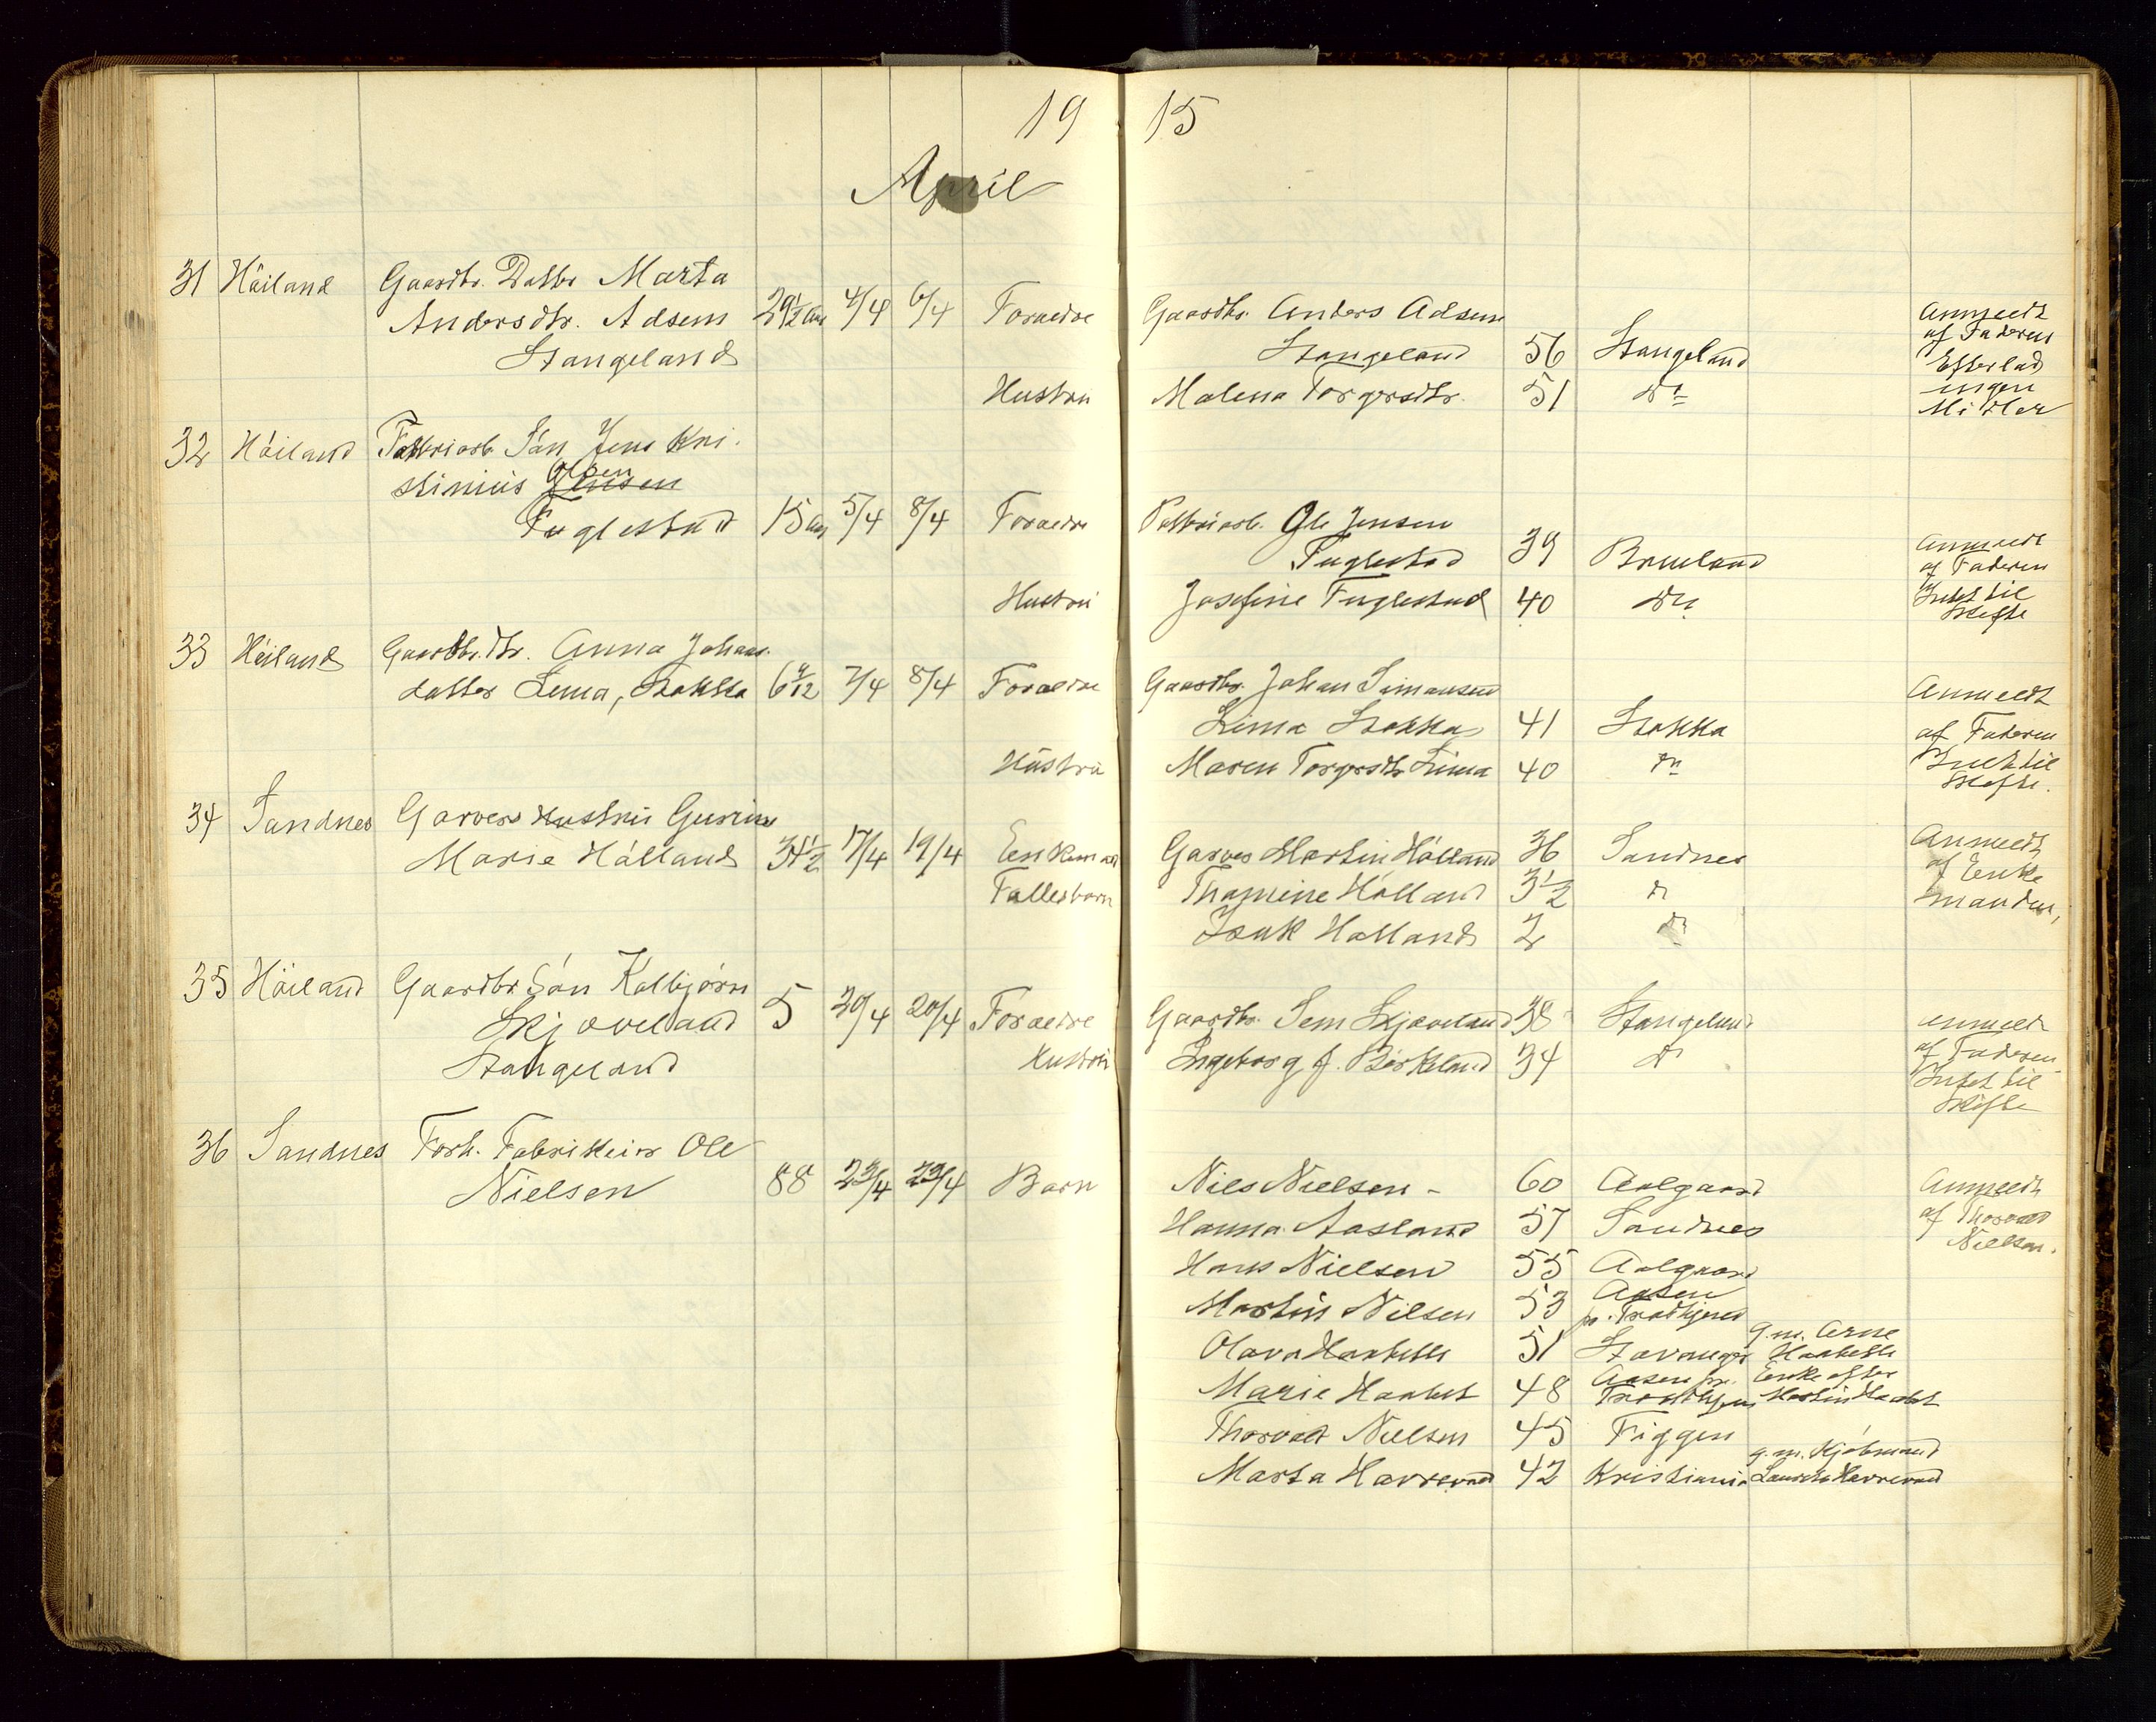 19 15
April
31 Häiland Gaardbr. Datter Marta
Andersdtr. Adsem 29 1/2 Aar 4/4 6/4 Foraeldre Gaardbr. Anders Adsem
Stangeland Stangeland 56 Stangeland
Anmeldt
af Faderen
Efterlad
ingen
Midler
Hustru Malena Torgersdtr. 51 do
32 Häiland Fabrikarb. Sön Jens Kri-
stinius Jensen Olsen
Fuglestad 15 Aar 5/4 8/4 Foraeldre Fabrikarb. Ole Jensen
Fuglestad 39 Brueland
Anmeldt
af Faderen
Intet til
Skifte
Hustru Josefine Fuglestad 40 do
33 Häiland Gaardbr. Dtr. Anna Johans-
datter Lima, Stokka 6 9/12 7/4 8/4 Foraeldre Gaardbr. Johan Simonsen
Lima Stokka 41 Stokka
Anmeldt
af Faderen
Intet til
Skifte.
Hustru Maren Torgersdtr Lima 40 do
34 Sandnes Garver Hustru Gurine
Marie Hålland 34 1/2 17/4 19/4 Enkemand Garver Martin Hålland 36 Sandnes
Fallesbarn Thomine Hålland 3 1/2 do
Isak Halland 2 do
Anmeldt
af Enke
manden,
35 Häiland Gaardbr Sön Kolbjørn
Skjæveland 5 20/4 20/4 Foraeldre Gaardbr. Sem Skjæveland 38 Stangeland
Stangeland Hustru Ingeborg f. Birkeland 34 do
Anmeldt
af Faderen
Intet til
Skifte
36 Sandnes Forh. Fabrikeier Ole
Nielsen 88 23/4 23/4 Barn Nils Nielsen - 60 Aalgaard
Anmeldt
af Thorvald
Nielsen.
Hanna Aasland 57 Sandnes
Hans Nielsen 55 Aalgaard
Martin Nilsen 53 Aasen
pr. Trodhjem
Olava Haabeth 51 Stavanger g.m. Arne
Haabeth
Marie Haabet 48 Aasen pr.
Trondhjem Enke efter
Martin Haabet
Thorvald Nielsen 45 Figgen
Marta Havrevold 42 Kristiania g.m. Kjöbmand
Lauritz Havrevold